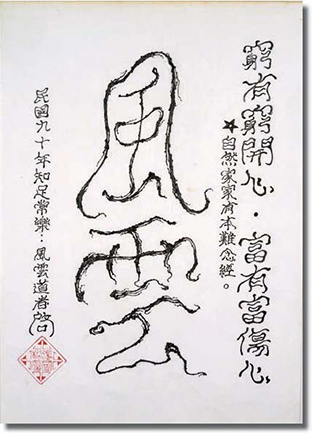 窮有窮開心·富有富傷心
★自然家家有本難念經。
風雲
民國九十年知足常樂:風雲道者啓